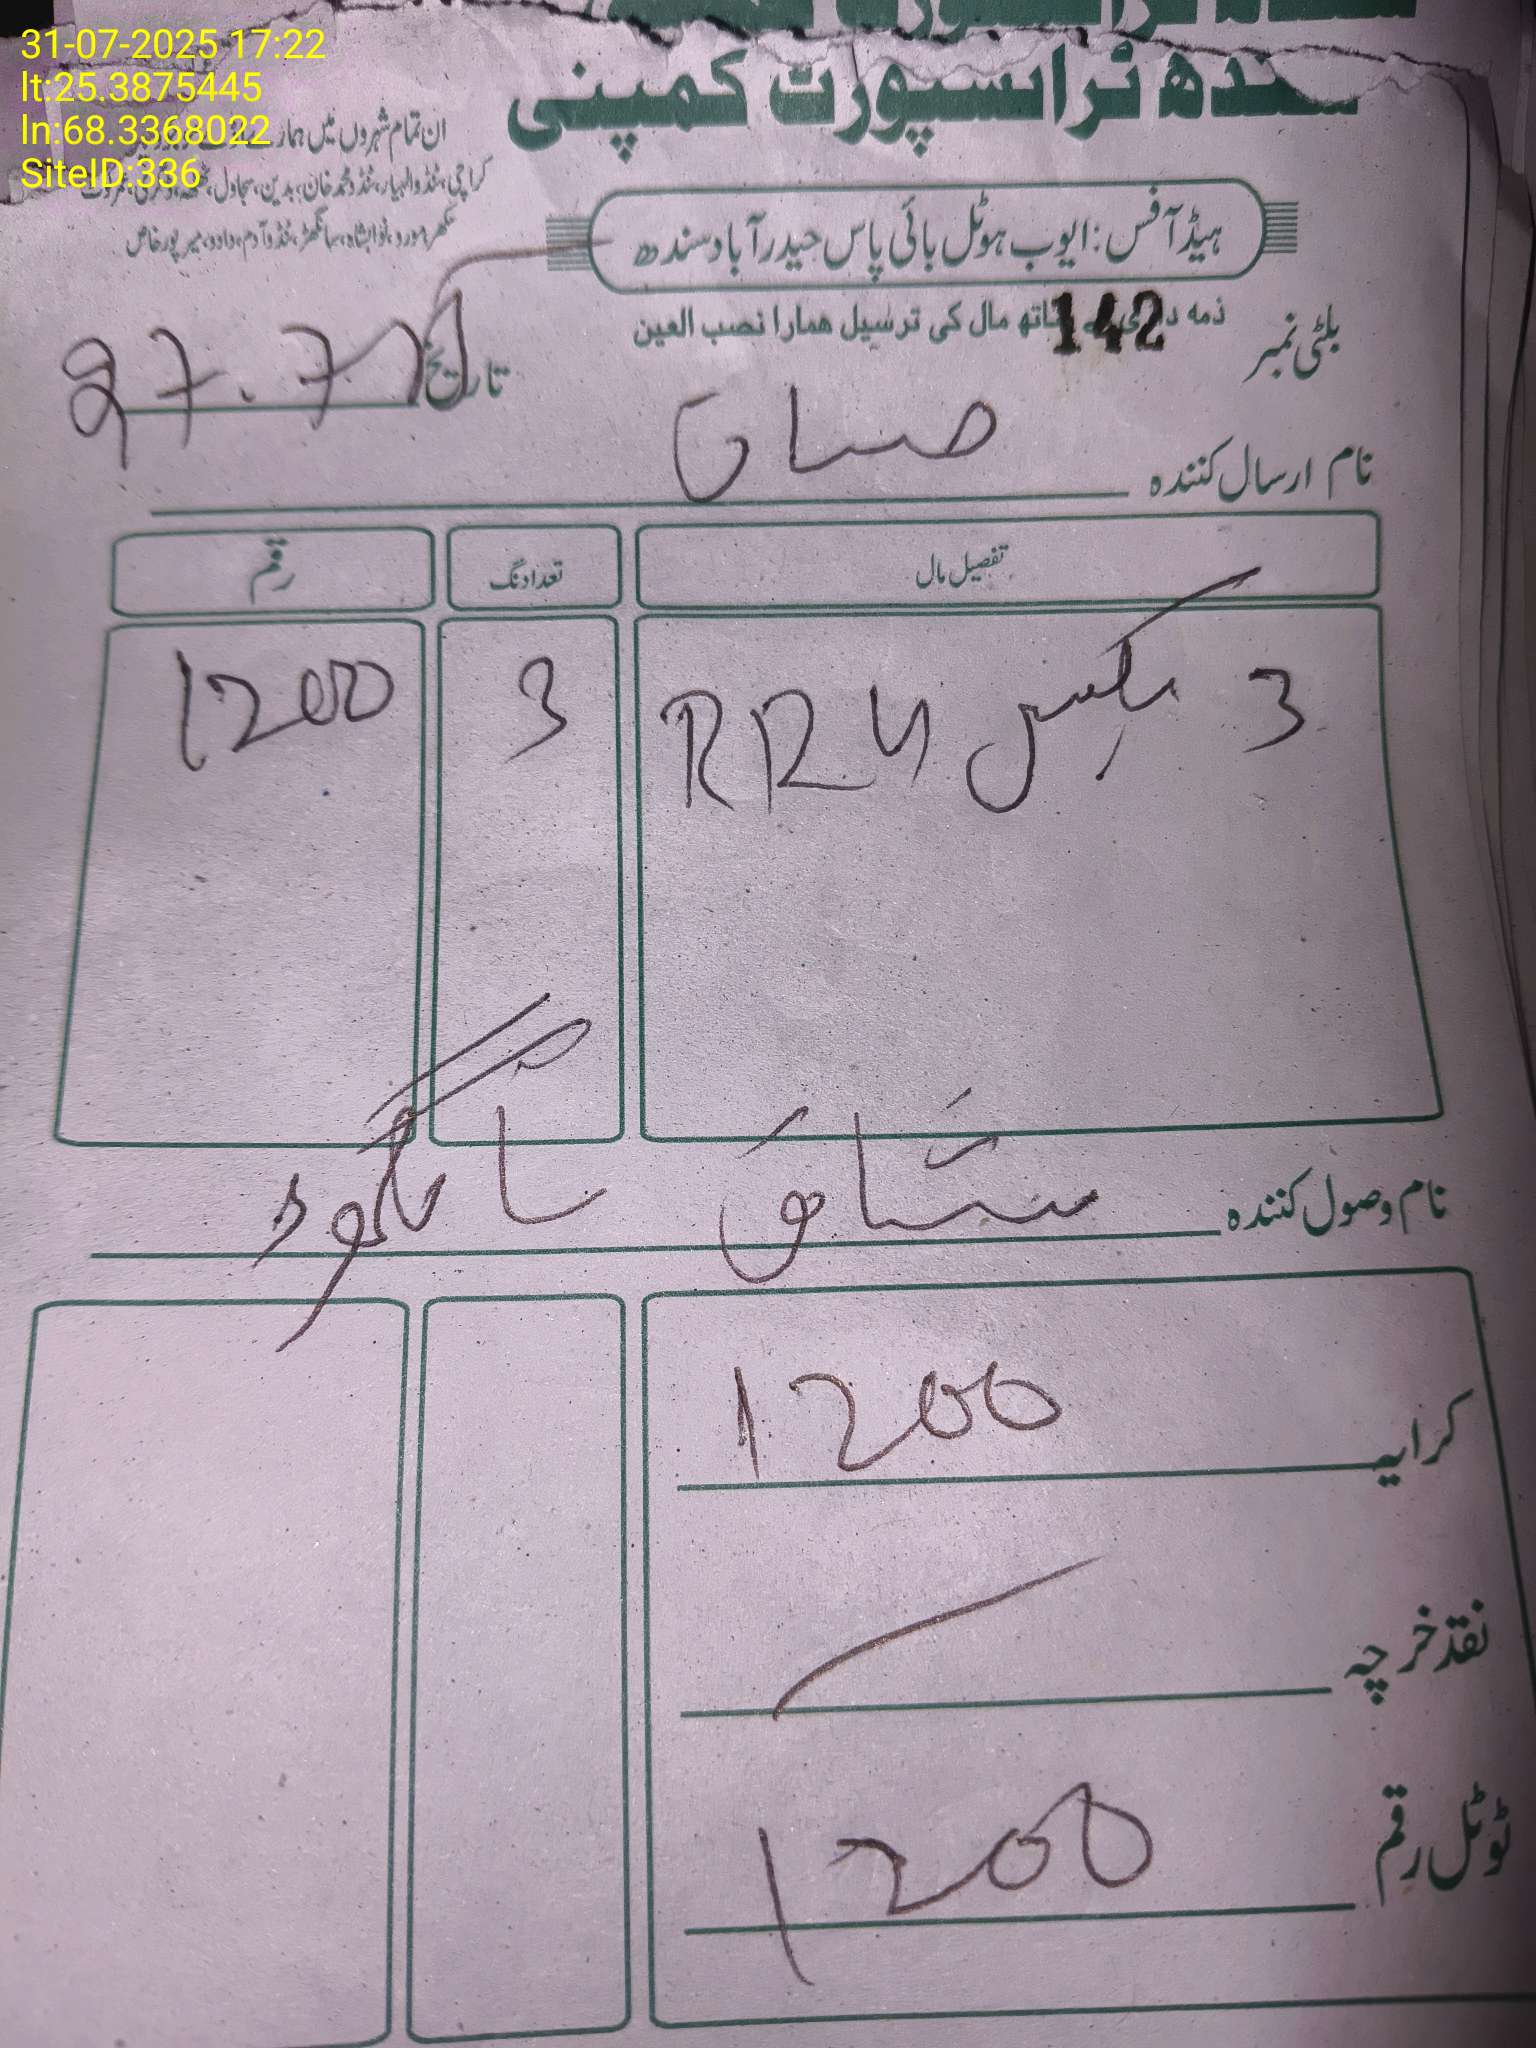 31-07-2025 17:22
lt:25.3875445
ln:68.3368022
SiteID:336
سندھ ٹرانسپورٹ کمپنی
ان تمام شہروں میں ہمار
کراچی، ٹنڈوالہیار، ٹنڈو محمد خان، بدین، سجاول،
سکھر، مورو، نوابشاہ، سانگھڑ، ٹنڈو آدم، دادو، میرپورخاص
ہیڈ آفس: ایوب ہوٹل بائی پاس حیدرآباد سندھ
ذمہ مال کی ترسیل ھمارا نصب العین
بلٹی نمبر 142
تاریخ 27.7
نام ارسال کنندہ
تفصیل مال تعداد نگ رقم
3 بکس RR 3 1200
نام وصول کنندہ مشتاق سانگھڑ
کرایہ 1200
نقد خرچہ
ٹوٹل رقم 1200